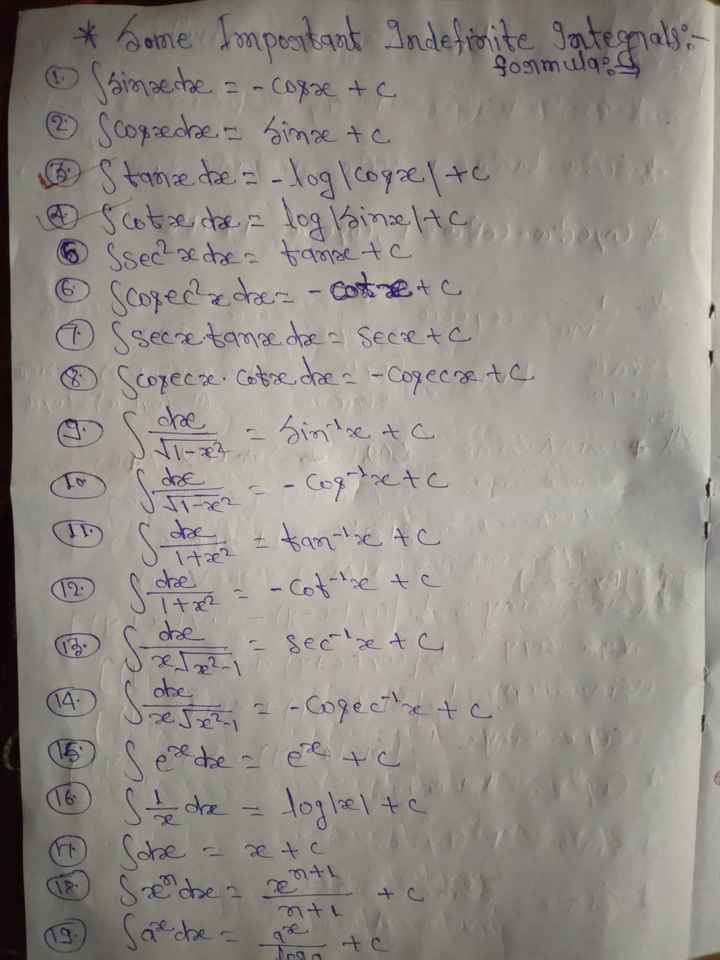 * Some Important Indefinite Integrals:-
formula:→
1. ∫sinxdx = -cosx + c
2. ∫cosxdx = sinx + c
3. ∫tanxdx = -log|cosx| + c
4. ∫cotxdx = log|sinx| + c
5 ∫sec²xdx = tanx + c
6. ∫cosec²xdx = -cotx + c
7. ∫secxtanxdx = secx + c
8. ∫cosecx.cotxdx = -cosecx + c
9. ∫dx/√1-x² = sin⁻¹x + c
10 ∫dx/√1-x² = -cos⁻¹x + c
11. ∫dx/1+x² = tan⁻¹x + c
12. ∫dx/1+x² = -cot⁻¹x + c
13. ∫dx/x√x²-1 = sec⁻¹x + c
14. ∫dx/x√x²-1 = -cosec⁻¹x + c
15. ∫eˣdx = eˣ + c
16. ∫1/x dx = log|x| + c
17. ∫dx = x + c
18. ∫xⁿdx = xⁿ⁺¹/n+1 + c
19. ∫aˣdx = aˣ/loga + c